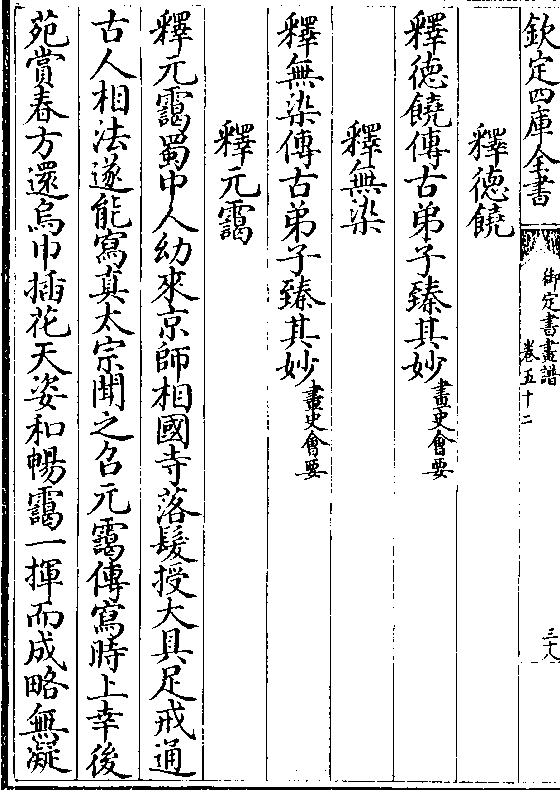 欽定四庫全書
御定書畫譜
卷五十二
三十八
釋德饒
釋德饒傳古弟子臻其妙畫史會要
釋無染
釋無染傳古弟子臻其妙畫史會要
釋元靄
釋元靄蜀中人幼來京師相國寺落髮授大具足戒通
古人相法遂能寫真太宗聞之召元靄傳寫時上幸後
苑賞春方還烏巾插花天姿和暢靄一揮而成略無凝